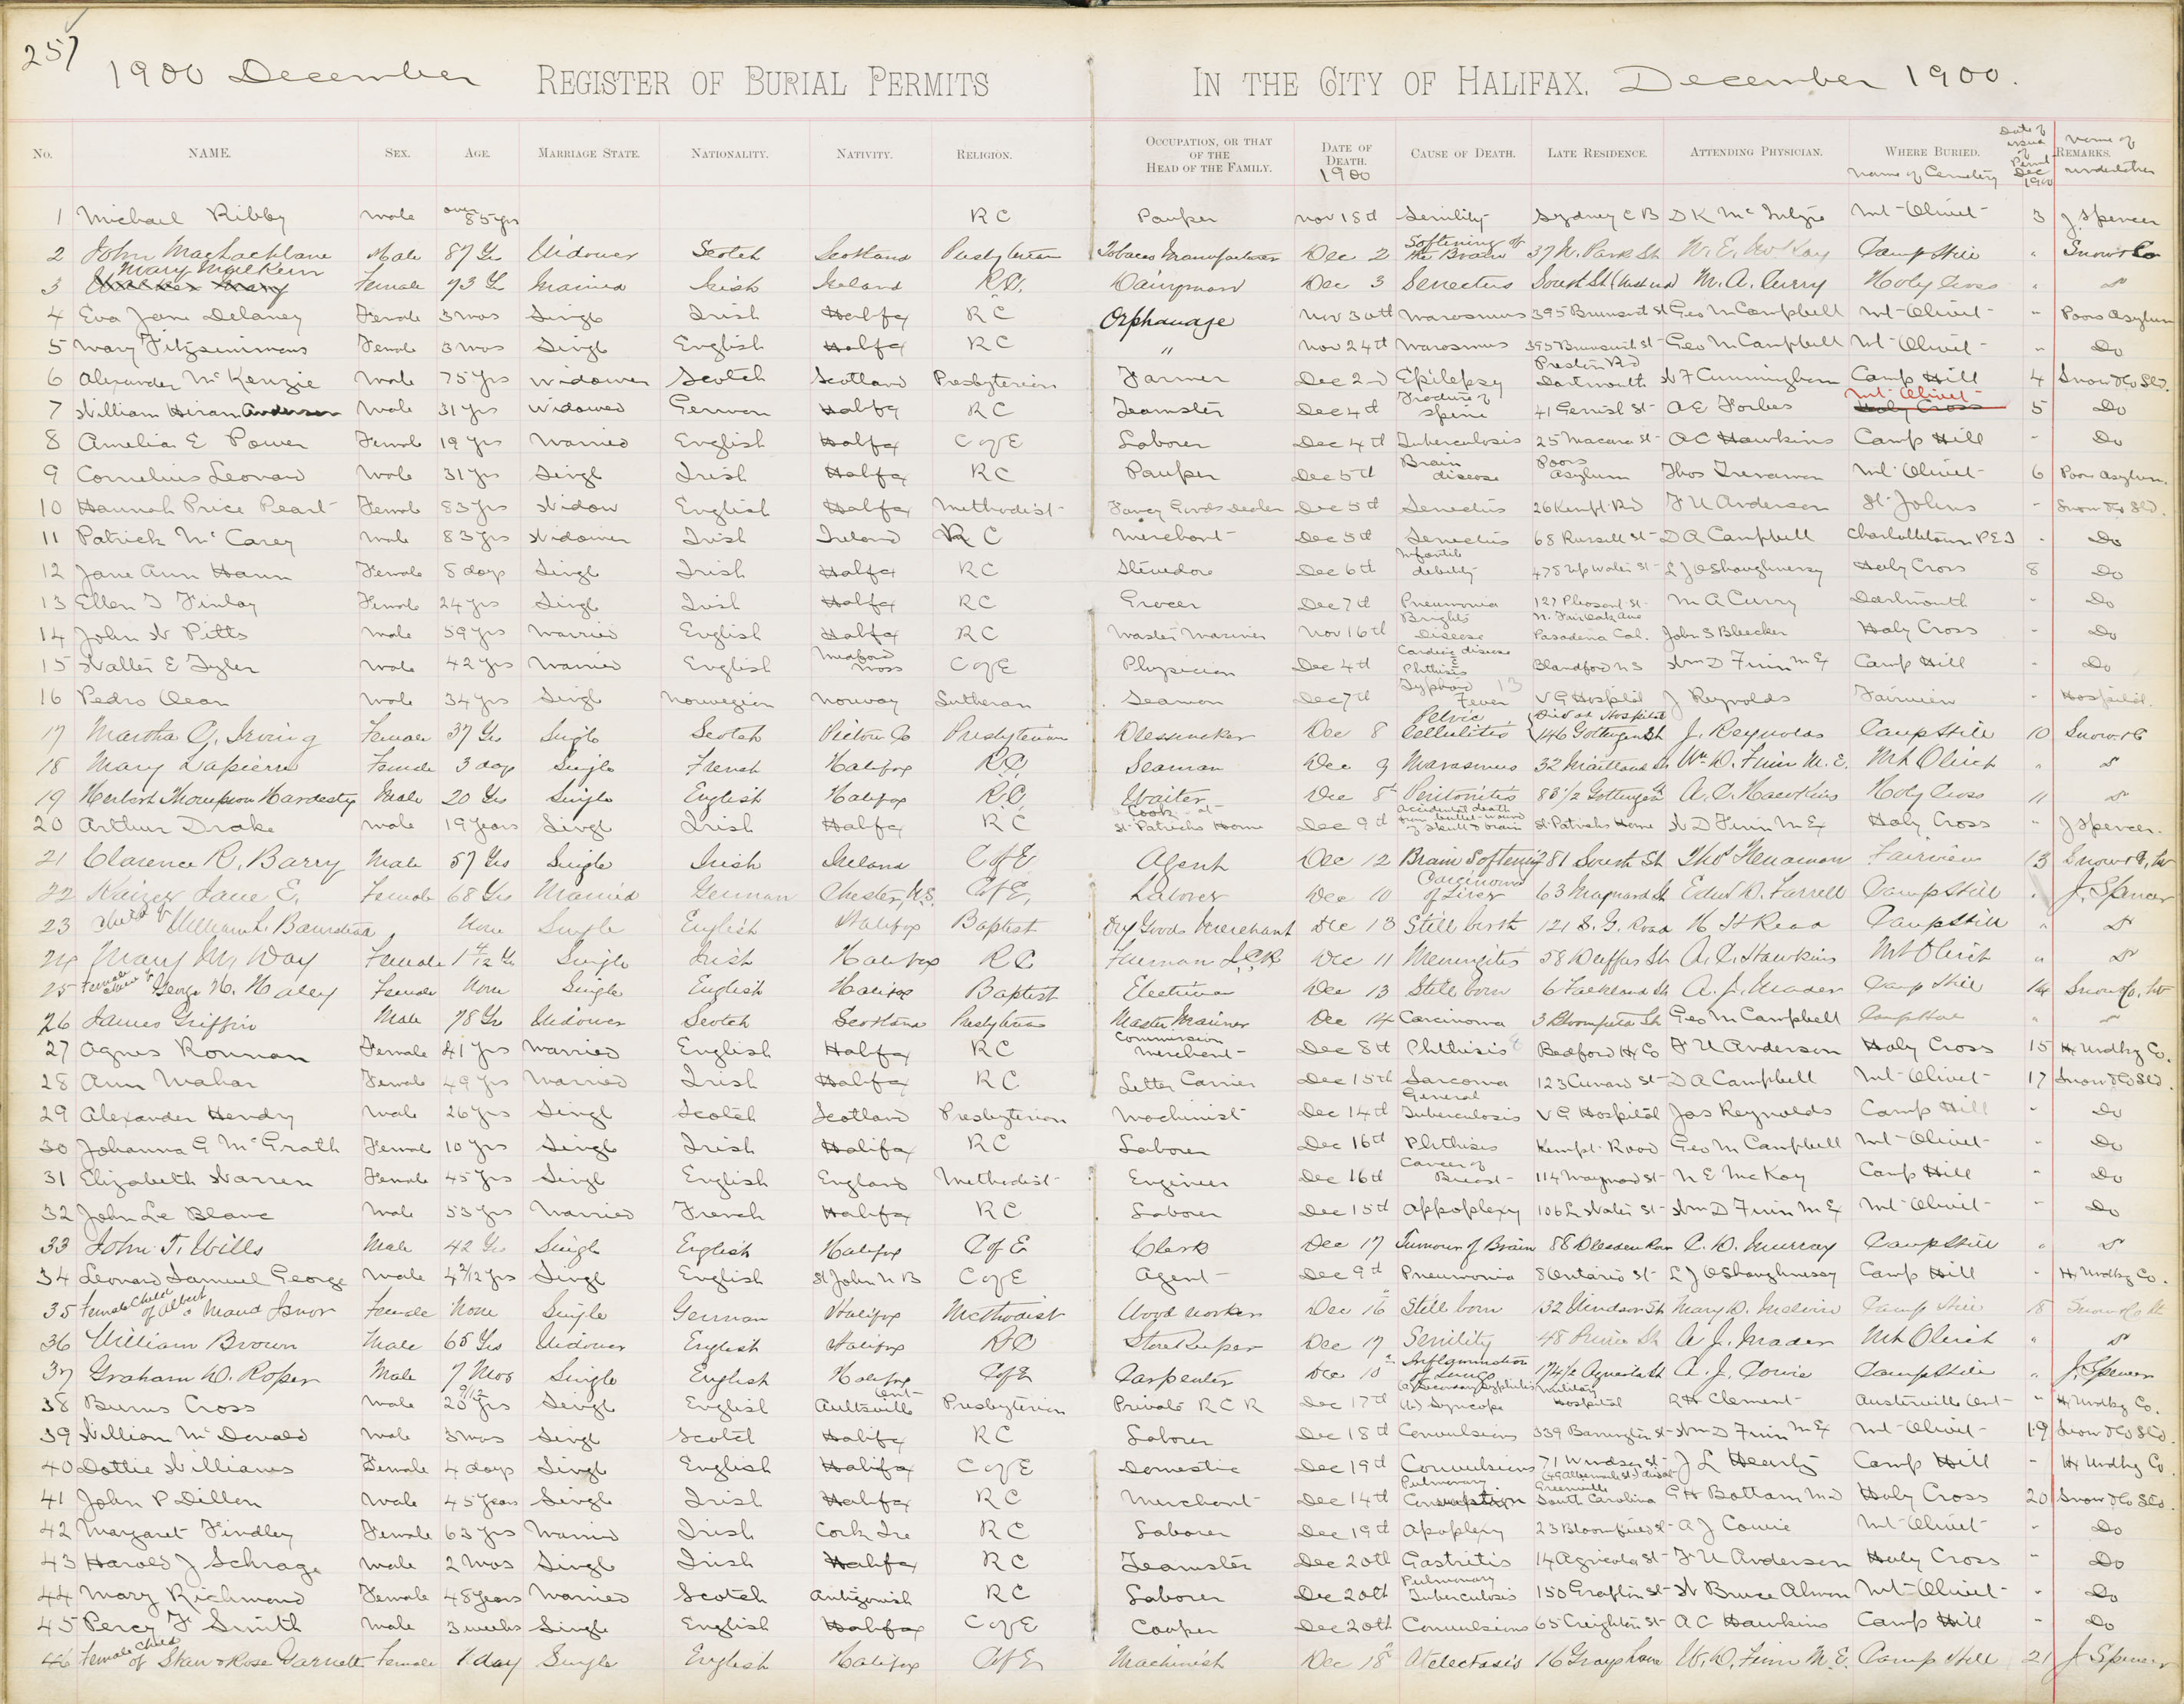 257
1900 December REGISTER OF BURIAL PERMITS IN THE CITY OF HALIFAX. December 1900.
No. NAME. SEX. AGE. MARRIAGE STATE. NATIONALITY. NATIVITY. RELIGION. OCCUPATION, OR THAT OF THE HEAD OF THE FAMILY. DATE OF DEATH. 1900 CAUSE OF DEATH. LATE RESIDENCE. ATTENDING PHYSICIAN. WHERE BURIED. Name of Cemetery Date of issue of Permit Dec 1900 REMARKS. Name of undertaker
1 Michael Ribby Male over 85 yrs R C Pauper Nov 18th Senility Sydney C B D K Mc Mt Olivet 3 J Spencer
2 John MacLachlane Male 87 Yrs Widower Scotch Scotland Presbyterian Tobacco Manufacturer Dec 2 Softening of the Brain 37 N. Park St W. E. McKay Camp Hill " Snow & Co
3 Mary Mulkern Female 73 Yrs Married Irish Ireland R.C. Dairyman Dec 3 Senectus South St (West end) M. A. Curry Holy Cross " Do
4 Eva Jane Delaney Female 3 mos Single Irish Halifax R C Orphanage Nov 30th Marasmus 395 Brunswick St Geo M Campbell Mt Olivet " Poors Asylum
5 Mary Fitzsimmons Female 3 mos Single English Halifax R C " Nov 24th Marasmus 395 Brunswick St Geo M Campbell Mt Olivet " Do
6 Alexander McKenzie Male 75 yrs Widower Scotch Scotland Presbyterian Farmer Dec 2nd Epilepsy Preston Rd Dartmouth N F Cunningham Camp Hill 4 Snow & Co Ltd.
7 William Hiram Anderson Male 31 yrs Widowed German Halifax R C Teamster Dec 4th Fracture of Spine 41 Gerrish St A E Forbes Holy Cross Mt Olivet 5 Do
8 Amelia E Power Female 19 yrs Married English Halifax C of E Laborer Dec 4th Tuberculosis 25 Macara St A C Hawkins Camp Hill - Do
9 Cornelius Leonard Male 31 yrs Single Irish Halifax R C Pauper Dec 5th Brain disease Poors Asylum Thos Trenaman Mt Olivet 6 Poors Asylum.
10 Hannah Price Peart Female 83 yrs Widow English Halifax Methodist Fancy Goods Dealer Dec 5th Senectus 26 Kempt Rd F U Anderson St Johns - Snow & Co Ltd.
11 Patrick McCarey Male 83 yrs Widower Irish Ireland R C Merchant Dec 5th Senectus 68 Russell St D A Campbell Charlottetown P E I - Do
12 Jane Ann Hann Female 8 days Single Irish Halifax R C Stevedore Dec 6th Infantile debility 478 Up Water St L J O'Shaughnessy Holy Cross 8 Do
13 Ellen T Finlay Female 24 yrs Single Irish Halifax R C Grocer Dec 7th Pneumonia 127 Pleasant St M A Curry Dartmouth - Do
14 John W Pitts Male 59 yrs Married English Halifax R C Master Mariner Nov 16th Brights Disease N. Fairoaks Ave Pasadena Cal. John S Bleecker Holy Cross - Do
15 Walter E Tyler Male 42 yrs Married English Medford Mass C of E Physician Dec 4th Cardiac disease & Phthisis Blandford N S Wm D Finn M E Camp Hill - Do
16 Pedro Olean Male 34 yrs Single Norwegian Norway Lutheran Seaman Dec 7th Typhoid Fever 13 V G Hospital J Reynolds Fairview - Hospital.
17 Martha G. Irving Female 37 Yrs Single Scotch Pictou Co Presbyterian Dressmaker Dec 8 Pelvic Cellulitis Died at Hospital 146 Gottingen St J. Reynolds Camp Hill 10 Snow & C
18 Mary Lapierre Female 3 days Single French Halifax R.C. Seaman Dec 9 Marasmus 32 Maitland St Wm. D. Finn M. E. Mt Olivet " Do
19 Herbert Thompson Hardesty Male 20 Yrs Single English Halifax R.C. Waiter Dec 8th Peritonitis 88 1/2 Gottingen St A. C. Hawkins Holy Cross 11 Do
20 Arthur Drake Male 19 years Single Irish Halifax R C Cook at St Patricks Home Dec 9th accidental death from bullet wound of skull & brain St Patricks Home W D Finn M E Holy Cross " J Spencer.
21 Clarence R. Barry Male 57 Yrs Single Irish Ireland C of E Agent Dec 12 Brain Softening 281 South St Thos Trenaman Fairview 13 Snow & Co,
22 Kaizer Jane E. Female 68 Yrs Married German Chester, N.S. C of E, Laborer Dec 10 Carcinoma of Liver 63 Maynard St Edwd D. Farrell Camp Hill " J. Spencer
23 Child of William L. None Single English Halifax Baptist Dry Goods Merchant Dec 13 Still birth 121 S. G. Road H H Read Camp Hill " Do
24 Mary M. Day Female 1 4/12 Yr Single Irish Halifax R C Fireman I.C.R Dec 11 Meningitis 58 Duffus St A. C. Hawkins Mt Olivet " Do
25 Female Child of George H. Haley Female None Single English Halifax Baptist Electrician Dec 13 Still born 6 Falkland St A. J. Mader Camp Hill 14 Snow & Co,
26 James Griffin Male 78 Yrs Widower Scotch Scotland Presbyterian Master Mariner Dec 14 Carcinoma 3 Bloomfield St Geo M Campbell Camp Hill " Do
27 Agnes Ronnan Female 41 yrs Married English Halifax R C Commission Merchant Dec 8th Phthisis Bedford Hx Co F U Anderson Holy Cross 15 Hx Undkg Co.
28 Ann Mahar Female 49 yrs Married Irish Halifax R C Letter Carrier Dec 15th Sarcoma 123 Cunard St D A Campbell Mt Olivet 17 Snow & Co Ltd.
29 Alexander Hendry Male 26 yrs Single Scotch Scotland Presbyterian Machinist Dec 14th General Tuberculosis V G Hospital Jas Reynolds Camp Hill - Do
30 Johanna G McGrath Female 10 yrs Single Irish Halifax R C Laborer Dec 16th Phthisis Kempt Road Geo M Campbell Mt Olivet - Do
31 Elizabeth Warren Female 45 yrs Single English England Methodist Engineer Dec 16th Cancer of Breast 114 Maynard St N E McKay Camp Hill - Do
32 John Le Blanc Male 53 yrs Married French Halifax R C Laborer Dec 15th Appoplexy 106 L Water St Wm D Finn M E Mt Olivet - Do
33 John T. Wills Male 42 Yrs Single English Halifax C of E Clerk Dec 17 Tumour of Brain 88 Dresden Row C. D. Murray Camp Hill " Do
34 Leonard Samuel George Male 4 3/12 yrs Single English St John N B C of E Agent Dec 9th Pneumonia 8 Ontario St L J O'Shaughnessy Camp Hill - Hx Undkg Co.
35 Female Child of Albert & Maud Isnor Female None Single German Halifax Methodist Wood worker Dec 16 Still born 132 Windsor St Mary D. Camp Hill 18 Snow & Co
36 William Brown Male 65 Yrs Widower English Halifax R C Store Keeper Dec 17 Senility 48 Prince St A J. Mader Mt Olivet " Do
37 Graham D. Roper Male 7 Mos Single English Halifax C of E Carpenter Dec 10th Inflammation of Lungs 174 1/2 Agricola St A. J. Cowie Camp Hill " J. Spencer
38 Burns Cross Male 20 9/12 yrs Single English Aultsville Ont Presbyterian Private R C R Dec 17th (a) Secondary Syphilis (b) Syncope Military Hospital R H Clement Austerville Ont " Hx Undkg Co.
39 William McDonald Male 3 mos Single Scotch Halifax R C Laborer Dec 18th Convulsions 339 Barrington St Wm D Finn M E Mt Olivet 19 Snow & Co Ltd.
40 Dottie Williams Female 4 days Single English Halifax C of E Domestic Dec 19th Convulsions 71 Windsor St (49 Albemarle St) J L Hearty Camp Hill - Hx Undkg Co.
41 John P Dillon Male 45 years Single Irish Halifax R C Merchant Dec 14th Pulmonary Consumption Greenville South Carolina G H Bottam M D Holy Cross 20 Snow & Co Ltd.
42 Margaret Findley Female 63 yrs Married Irish Cork Ire R C Laborer Dec 19th Apoplexy 23 Bloomfield St A J Cowie Mt Olivet - Do
43 Harold J Schrage Male 2 mos Single Irish Halifax R C Teamster Dec 20th Gastritis 14 Agricola St F U Anderson Holy Cross - Do
44 Mary Richmond Female 48 years Married Scotch Antigonish R C Laborer Dec 20th Pulmonary Tuberculosis 150 Grafton St W Bruce Almon Mt Olivet - Do
45 Percy F Smith Male 3 weeks Single English Halifax C of E Cooper Dec 20th Convulsions 65 Creighton St A C Hawkins Camp Hill - Do
46 Female Child of Stan & Rose Garnett Female 1 day Single English Halifax C of E Machinist Dec 18th Atelectasis 16 Grays Lane W. D. Finn M. E. Camp Hill 21 J Spencer